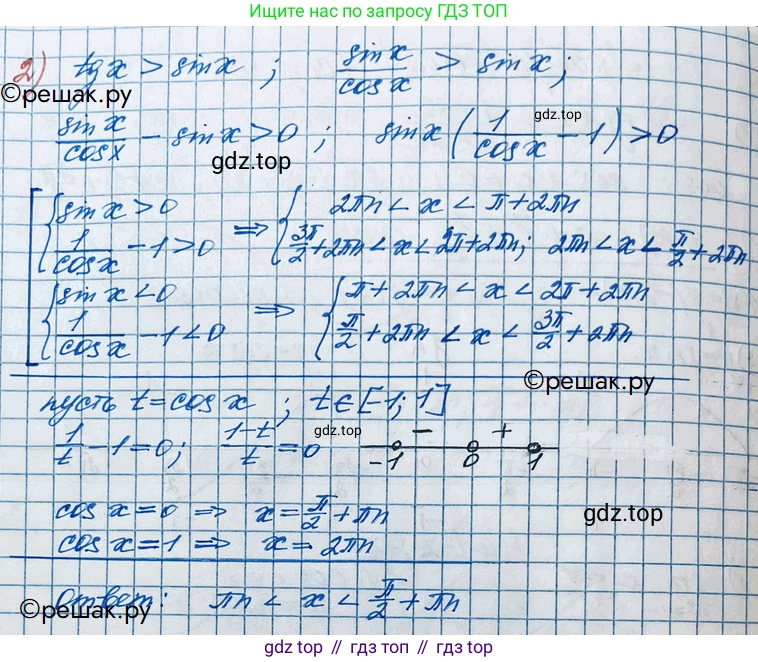 Ищите нас по запросу ГДЗ ТОП
2) tgx > sinx ; sinx/cosx > sinx ;
©решак.ру
sinx/cosx - sinx > 0 ; sinx (1/cosx - 1) > 0
gdz.top
gdz.top
[ { sinx > 0 ⇒ { 2πn < x < π + 2πn
1/cosx - 1 > 0 3π/2 + 2πn < x < 2π + 2πn ; 2πn < x < π/2 + 2πn
{ sinx < 0 ⇒ { π + 2πn < x < 2π + 2πn
1/cosx - 1 < 0 π/2 + 2πn < x < 3π/2 + 2πn
©решак.ру
пусть t = cosx ; t ∈ [-1; 1]
1/t - 1 = 0 ; 1-t/t = 0 gdz.top - +
-1 0 1
cosx = 0 ⇒ x = π/2 + πn
gdz.top
cosx = 1 ⇒ x = 2πn
Ответ: πn < x < π/2 + πn
©решак.ру
gdz top // гдз топ // gdz top